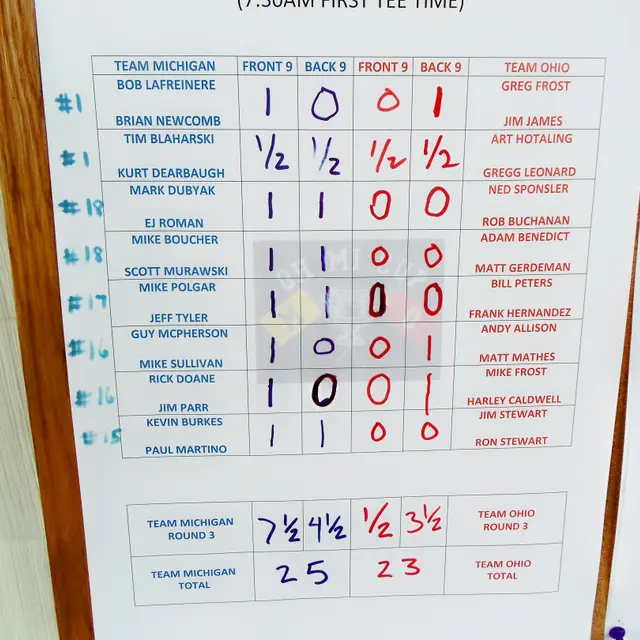 (7:30AM FIRST TEE TIME)
TEAM MICHIGAN FRONT 9 BACK 9 FRONT 9 BACK 9 TEAM OHIO
BOB LAFREINERE GREG FROST
#1 1 0 0 1
BRIAN NEWCOMB JIM JAMES
TIM BLAHARSKI ART HOTALING
#1 1/2 1/2 1/2 1/2
KURT DEARBAUGH GREGG LEONARD
MARK DUBYAK NED SPONSLER
#18 1 1 0 0
EJ ROMAN ROB BUCHANAN
MIKE BOUCHER ADAM BENEDICT
#18 1 1 0 0
SCOTT MURAWSKI MATT GERDEMAN
MIKE POLGAR BILL PETERS
#17 1 1 0 0
JEFF TYLER FRANK HERNANDEZ
GUY MCPHERSON ANDY ALLISON
#16 1 0 0 1
MIKE SULLIVAN MATT MATHES
RICK DOANE MIKE FROST
#16 1 0 0 1
JIM PARR HARLEY CALDWELL
KEVIN BURKES JIM STEWART
#15 1 1 0 0
PAUL MARTINO RON STEWART
TEAM MICHIGAN TEAM OHIO
ROUND 3 7 1/2 4 1/2 1/2 3 1/2 ROUND 3
TEAM MICHIGAN TEAM OHIO
TOTAL 25 23 TOTAL